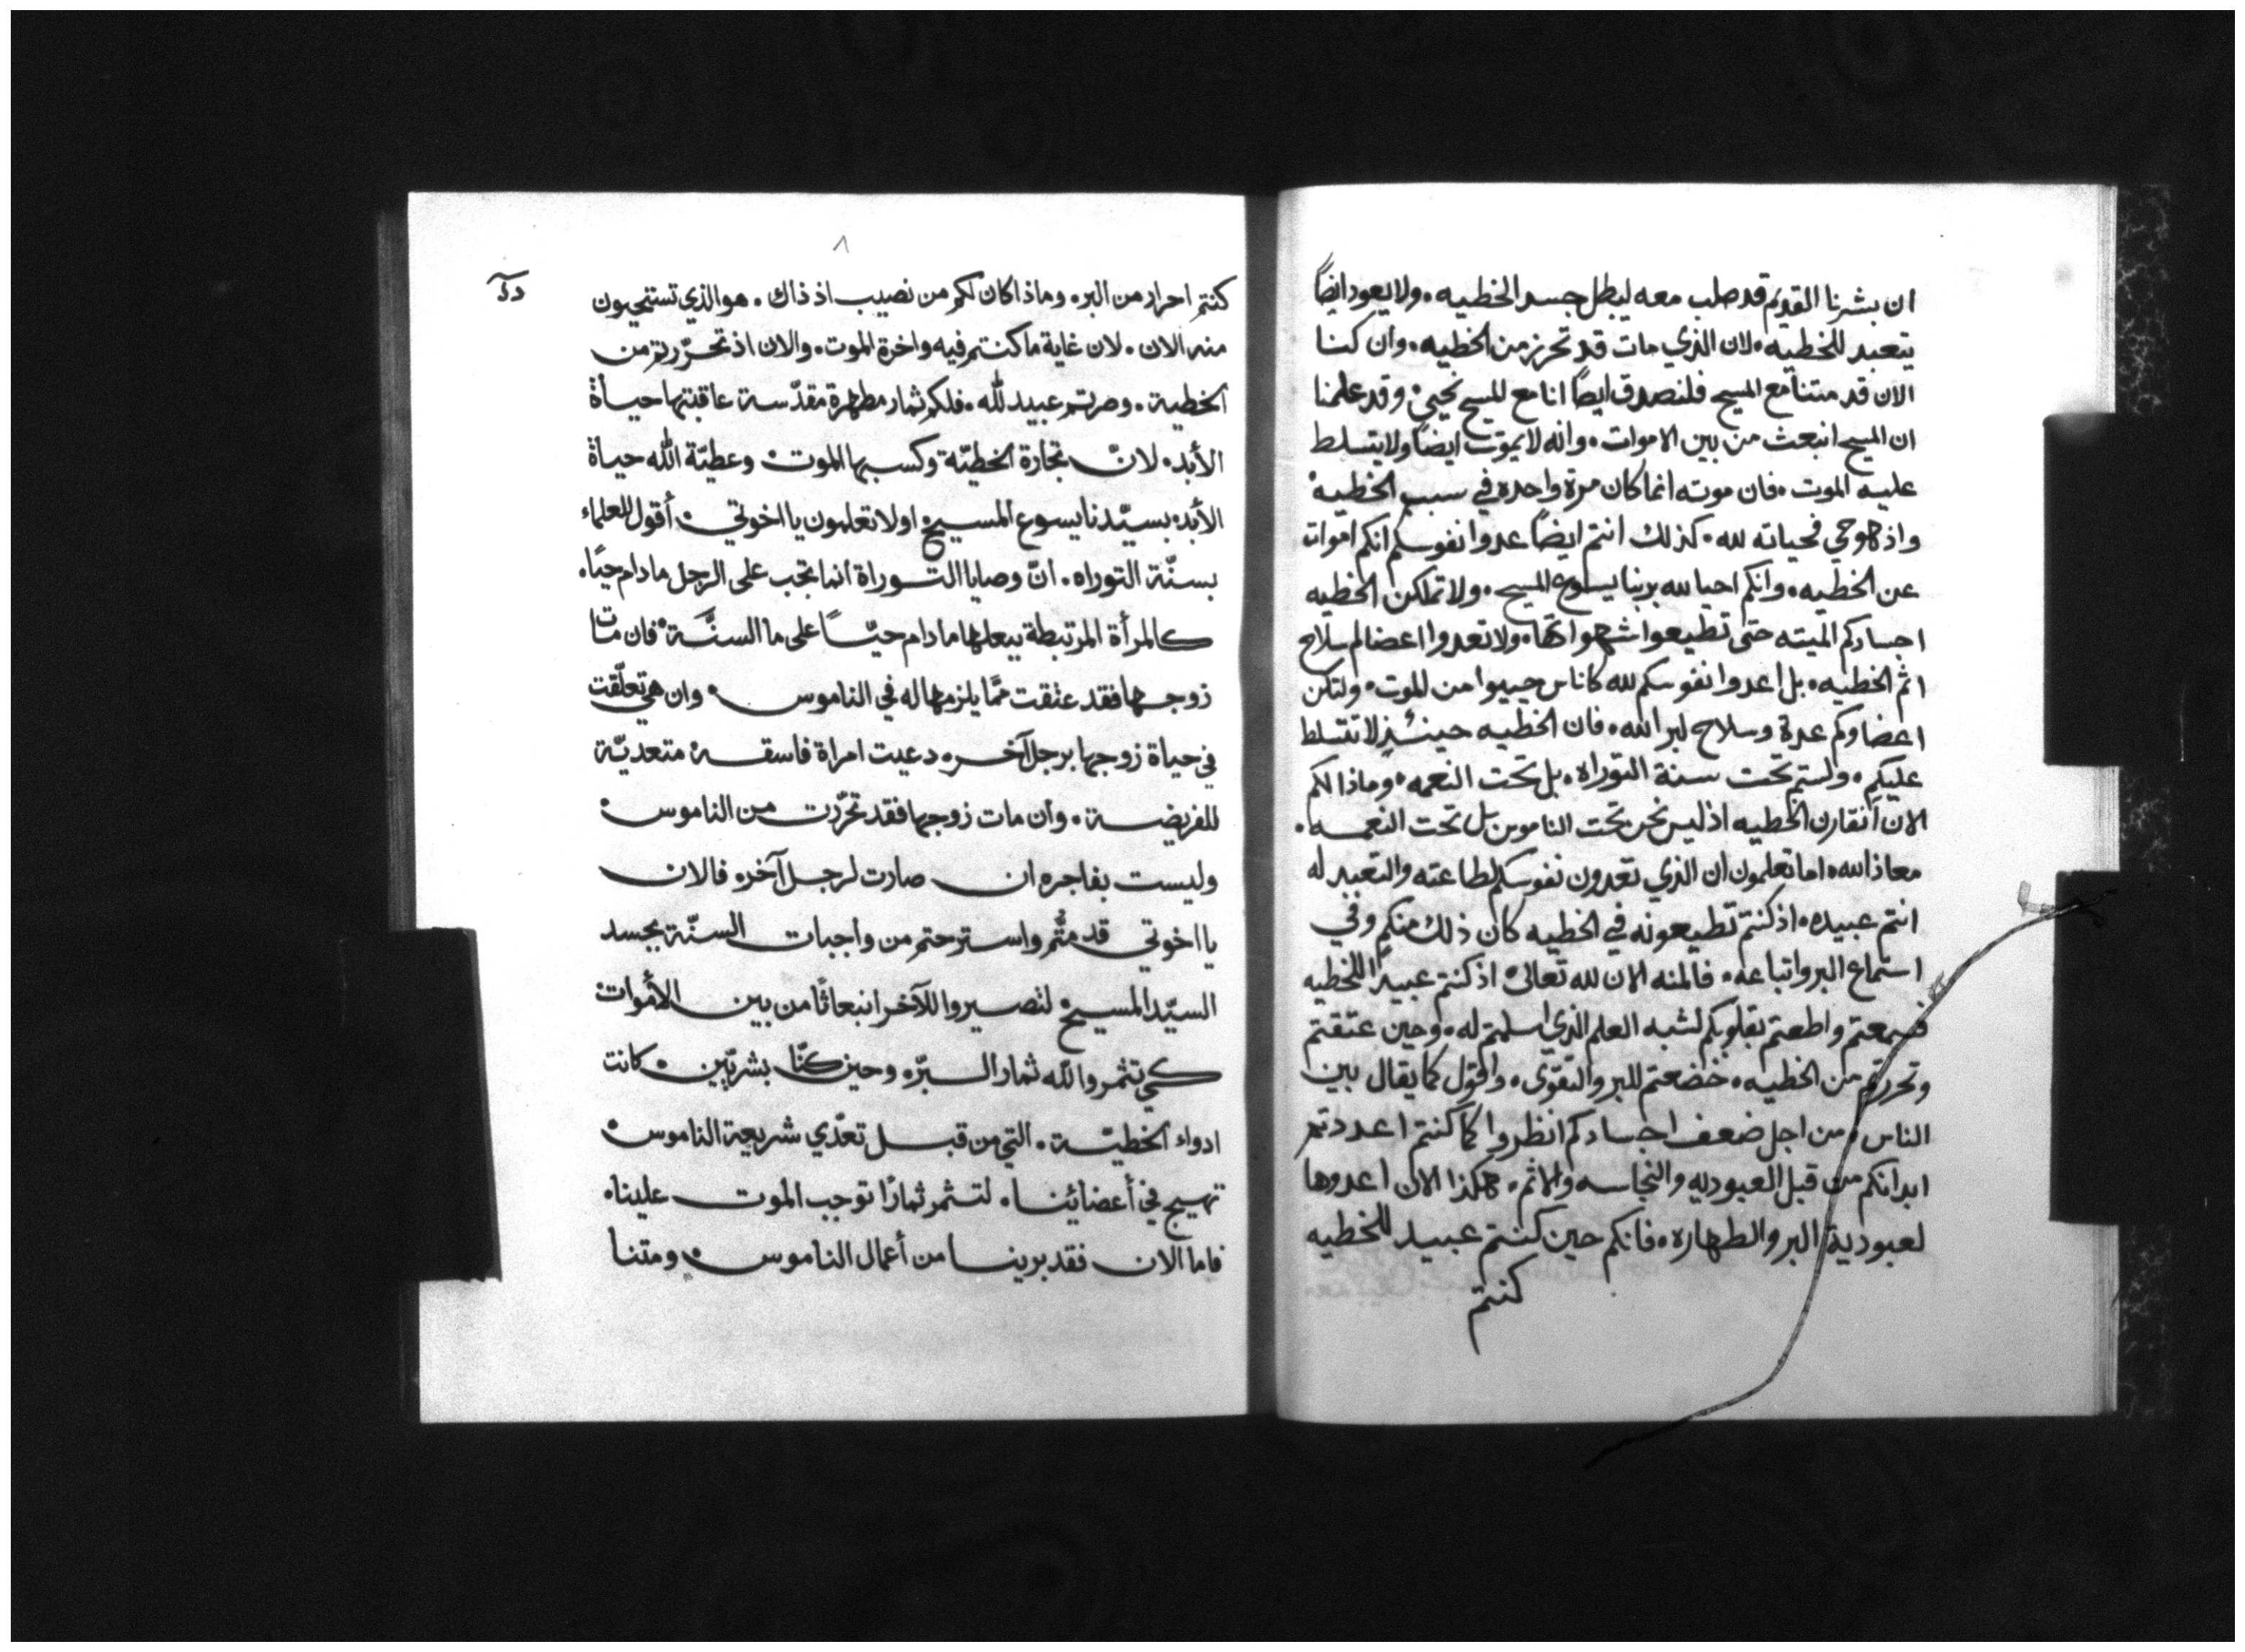 ان بشرنا القديم قد صلب معه ليبطل جسد الخطيه. ولا يعود ايضاً
يتعبد للخطيه. لان الذي مات قد تحرز من الخطيه. وان كنا
الان قد متنا مع المسيح فلنصدق ايضاً انا مع المسيح نحيي. وقد علمنا
ان المسيح انبعث من بين الاموات. وانه لا يموت ايضاً ولا يتسلط
عليه الموت. فان موته انما كان مرة واحده في سبب الخطيه.
واذ هو حي فحياته لله. كذلك انتم ايضاً عدوا نفوسكم انكم اموات
عن الخطيه. وانكم احيا لله بربنا يسوع المسيح. ولا تملكن الخطيه
اجسادكم الميته حتى تطيعوا شهواتها. ولا تعدوا اعضالم سلاح
اثم الخطيه. بل اعدوا نفوسكم لله كاناس حييوا من الموت. ولتكن
اعضاوكم عدة وسلاح لبر الله. فان الخطيه حينئذٍ لا تتسلط
عليكم. ولستم تحت سنة التوراه. بل تحت النعمه. وماذا لكم
الان أنقارن الخطيه اذ ليس نحن تحت الناموس بل تحت النعمه.
معاذ الله. اما تعلمون ان الذي تعدون نفوسكم لطاعته والتعبد له
انتم عبيده. اذ كنتم تطيعونه في الخطيه كان ذلك منكم وفي
استماع البر واتباعه. فالمنه الان لله تعالى. اذ كنتم عبيداً للخطيه
فسمعتم واطعتم بقلوبكم لشبه العلم الذي اسلمتم له. وحين عتقتم
وتحررتم من الخطيه. خضعتم للبر والتقوى. واقول كما يقال بين
الناس. من اجل ضعف اجسادكم انظروا كما كنتم اعددتم
ابدانكم من قبل العبوديه والنجاسه والاثم. هكذا الان اعدوها
لعبودية البر والطهاره. فانكم حين كنتم عبيد للخطيه
كنتم
٨
كنتم احرار من البر. وماذا كان لكم من نصيب اذ ذاك. هو الذي تستحيون
منه الان. لان غاية ما كنتم فيه واخرة الموت. والان اذ تحرّرتم من
الخطية. وصرتم عبيد لله. فلكم ثمار مطهرة مقدّسة عاقبتها حياة
الأبد. لانّ تجارة الخطيّة وكسبها الموت. وعطيّة الله حياة
الأبد. بسيّدنا يسوع المسيح. اولا تعلمون يا اخوتي. أقول للعلماء
بسنّة التوراه. انّ وصايا التوراة انما تجب على الرجل ما دام حيًا.
كالمرأة المرتبطة ببعلها ما دام حيّاً على ما السنَّة. فان مات
زوجها فقد عتقت ممّا يلزمها له في الناموس. وان هي تعلّقت
في حياة زوجها برجل آخر. دعيت امراة فاسقة متعديّة
للفريضة. وان مات زوجها فقد تحرّرت من الناموس.
وليست بفاجره ان صارت لرجل آخر. فالان
يا اخوتي قد متُّم واسترحتم من واجبات السنّة بجسد
السيّد المسيح. لتصيروا للآخر انبعاثًا من بين الأموات
كي تثمروا لله ثمار البرّ. وحين كنّا بشريّين. كانت
ادواء الخطيّة. التي من قبل تعدّي شريعة الناموس.
تهيج في أعضائنا. لتثمر ثمارًا توجب الموت علينا.
فاما الان فقد برينا من أعمال الناموس. ومتنا